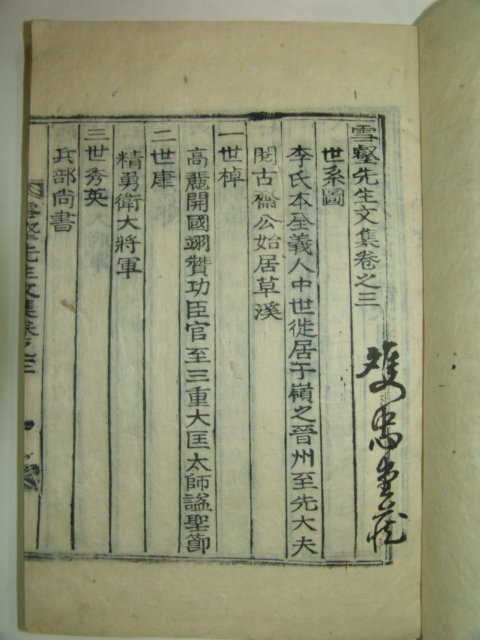 雪壑先生文集卷之三
世系圖
李氏本全義人中世徙居于嶺之晉州至先大夫
閱古齋公始居草溪
一世棹
高麗開國翊贊功臣官至三重大匡太師諡聖節
二世康
精勇衛大將軍
三世秀英
兵部尚書
雪壑先生文集卷之三